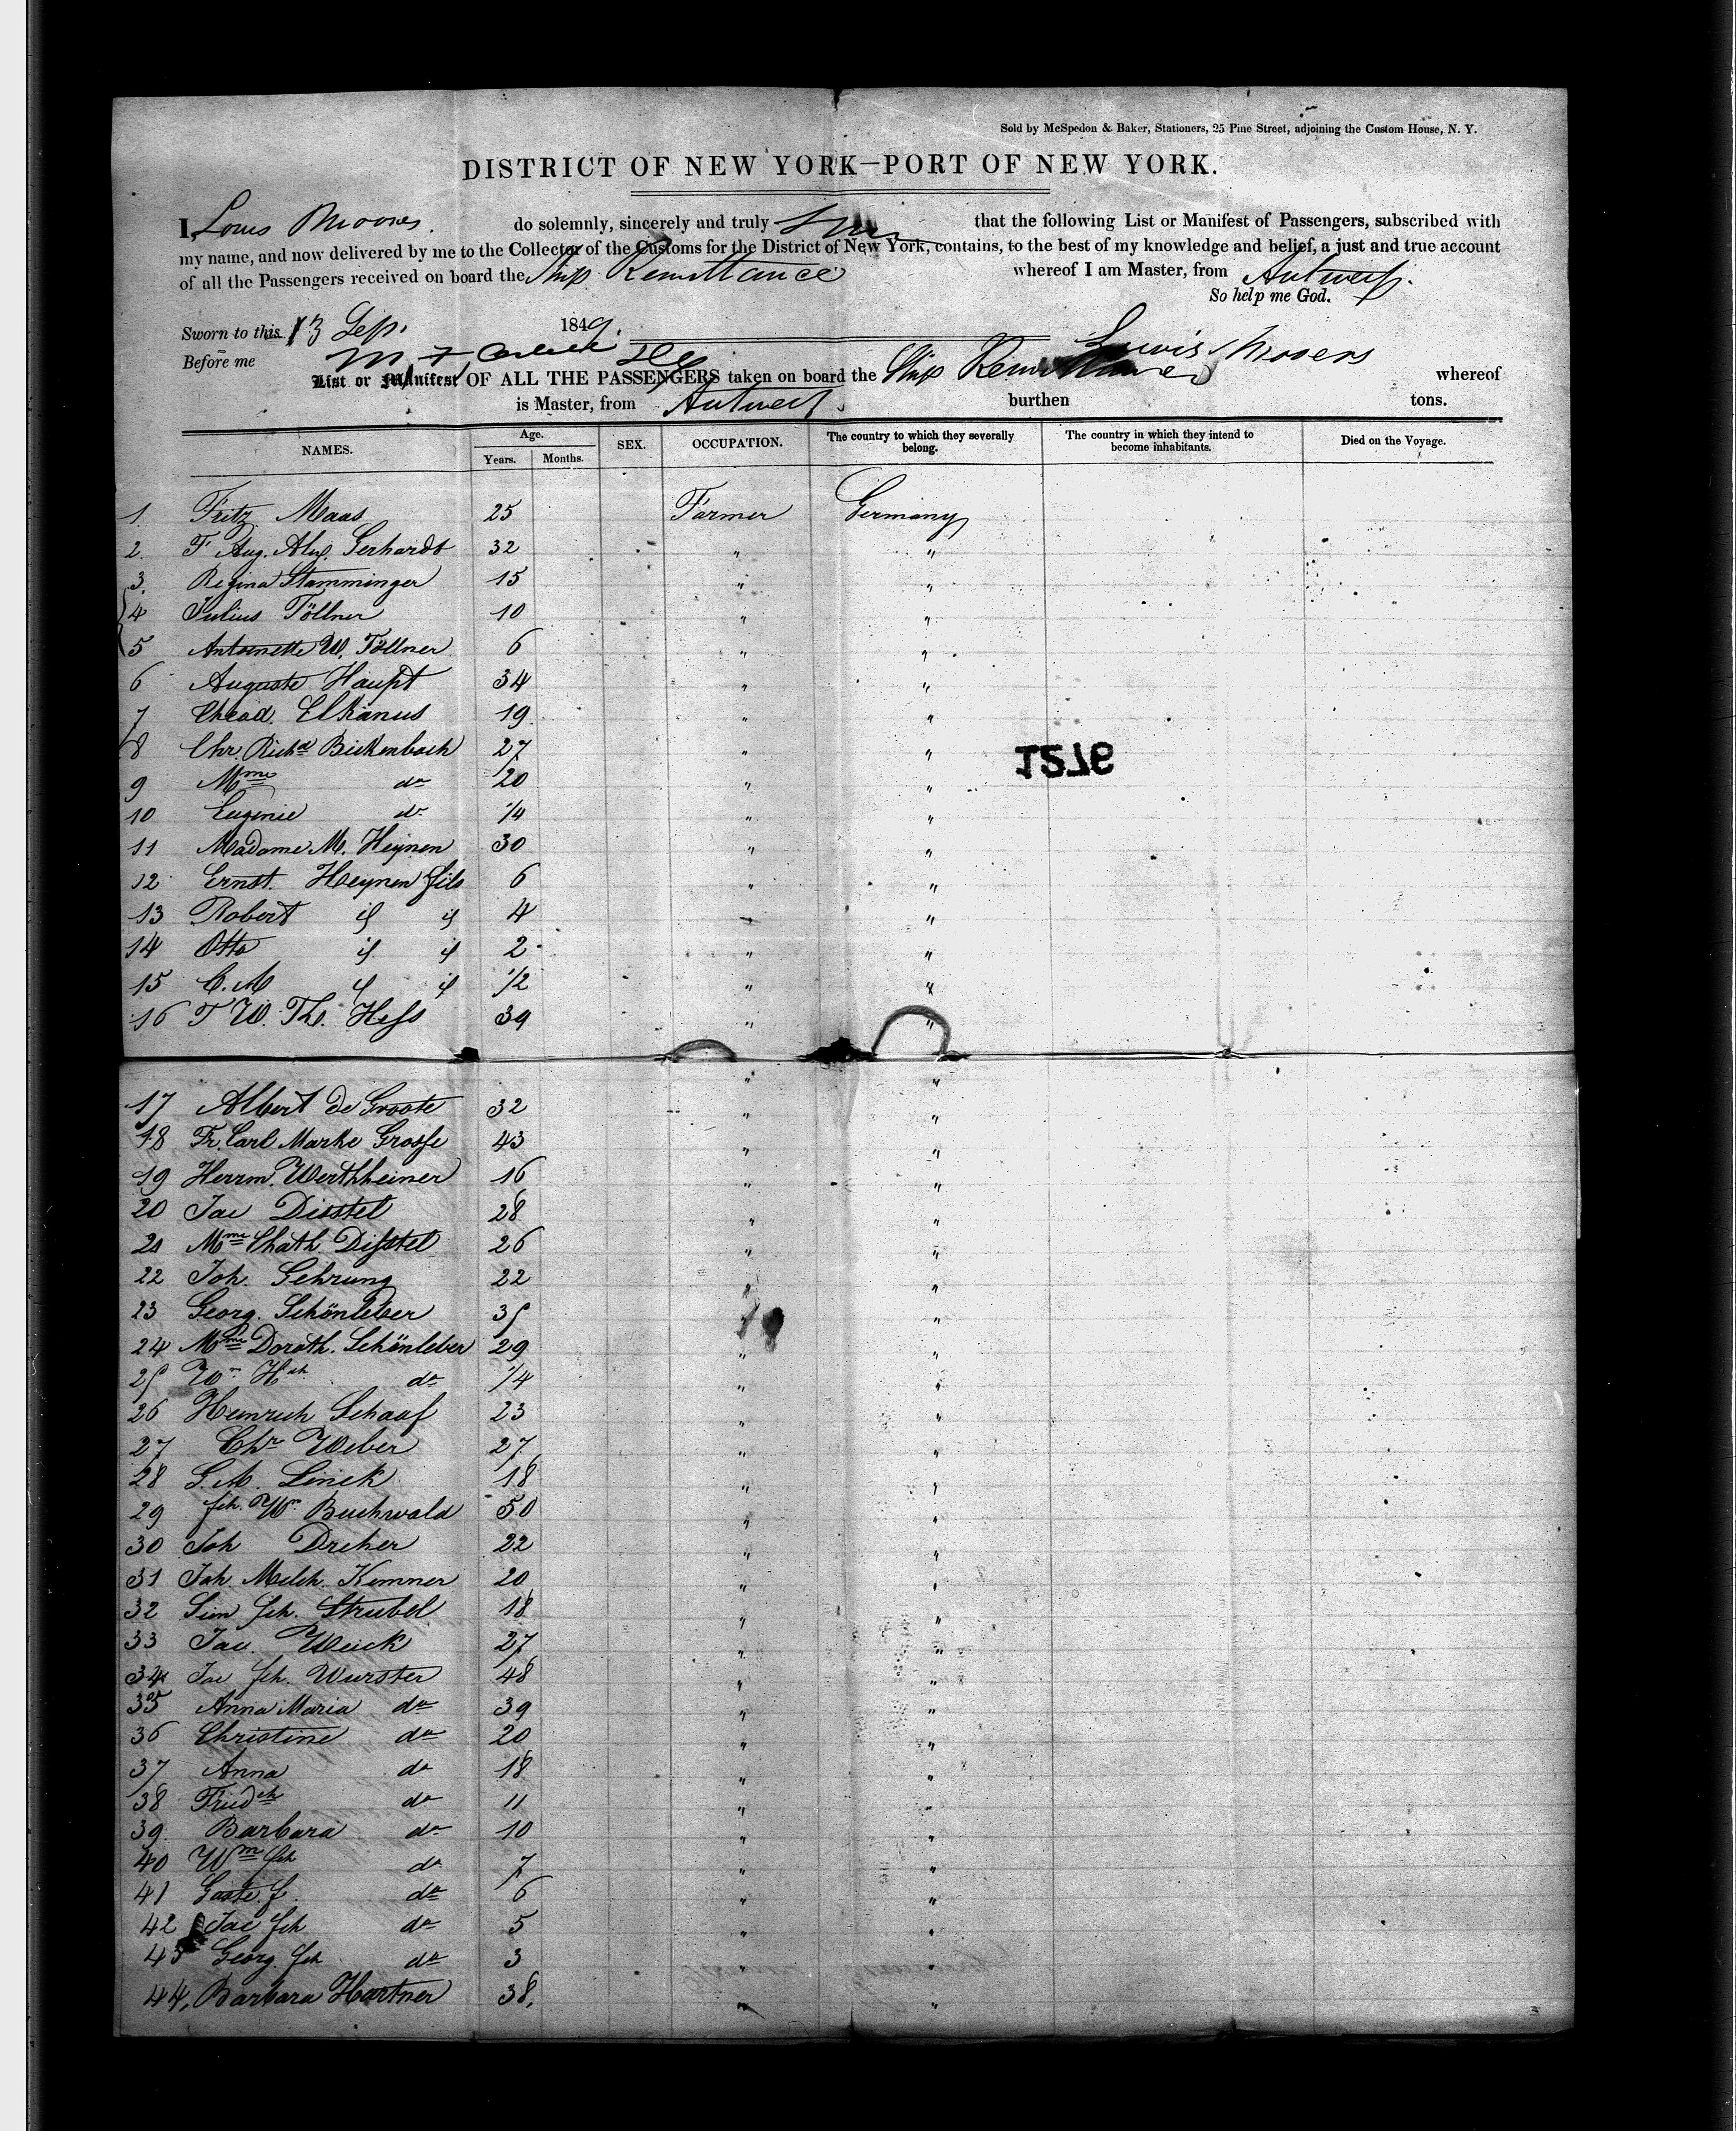 Sold by McSpedon & Baker, Stationers, 25 Pine Street, adjoining the Custom House, N. Y.
DISTRICT OF NEW YORK—PORT OF NEW YORK.
I, Louis Mooers. do solemnly, sincerely and truly that the following List or Manifest of Passengers, subscribed with
my name, and now delivered by me to the Collector of the Customs for the District of New York, contains, to the best of my knowledge and belief, a just and true account
of all the Passengers received on board the Ship Remittance whereof I am Master, from Antwerp.
So help me God.
Sworn to this 13 Sep. 1849.
Before me Lewis Mooers
List or Manifest OF ALL THE PASSENGERS taken on board the Ship Remittance whereof
is Master, from Antwerp. burthen tons.
NAMES. Age. Years. Months. SEX. OCCUPATION. The country to which they severally belong. The country in which they intend to become inhabitants. Died on the Voyage.
1. Fritz Maas 25 Farmer Germany
2. F Aug. Alex. Gerhardt 32 " "
3. Regina Stamminger 15 " "
4 Julius Töllner 10 " "
5 Antoinette W. Töllner 6 " "
6 Auguste Haupt 34 " "
7 Elkanus 19 " "
8 Chr. Richd Bickenbach 27 " "
1276
9 Mme do 20 " "
10 Eugenie do 1/4 " "
11 Madame M. Heynen 30 " "
12 Ernst. Heynen fils 6 " "
13 Robert if if 4 " "
14 Otto if if 2 " "
15 C. M if if 1/2 " "
16 F W. Th. Hess 39 " "
17 Albert de Groote 32 " "
18 Fr. Carl Marke Grosse 43 " "
19 Herrm. Werthheimer 16 " "
20 Jac Disstel 28 " "
21 Mme Chath Disstel 26 " "
22 Joh. Gehrung 22 " "
23 Georg. Schönleber 35 " "
24 Mme Doroth. Schönleber 29 " "
25 Wm Hch do 1/4 " "
26 Heinrich Schaaf 23 " "
27 Chr Weber 27 " "
28 G. M. Linck 18 " "
29 Fch. Wm Buchwald 50 " "
30 Joh Dreher 22 " "
31 Joh. Melch. Kemner 20 " "
32 Sim Fch. Strubel 18 " "
33 Jac. Weick 27 " "
34 Jac Fch. Wurster 48 " "
35 Anna Maria do 39 " "
36 Christine do 20 " "
37 Anna do 18 " "
38 Friedch do 11 " "
39. Barbara do 10 " "
40 Wm Fch do 7 " "
41 do 6 " "
42 Jac Fch do 5 " "
43 Georg. Fch do 3 " "
44, Barbara Hartner 38, " "